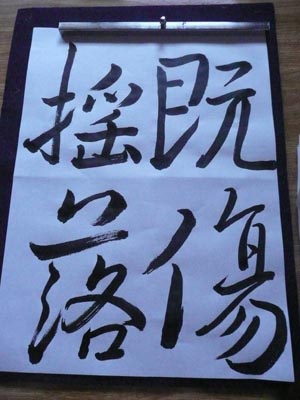 既傷
揺落